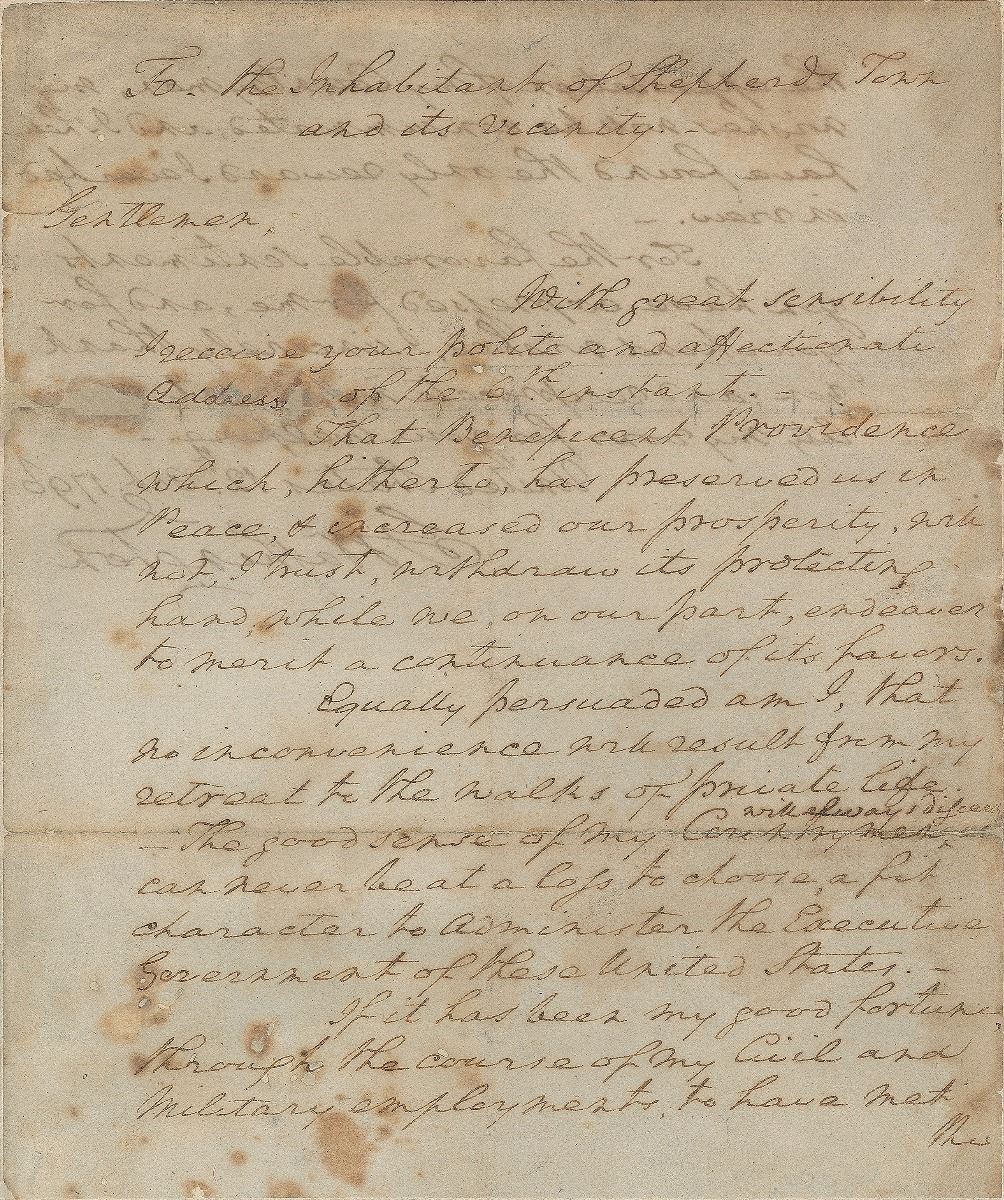 To. the Inhabitants of Shepherds Town
and its vicinity. -
Gentlemen,
With great sensibility
I receive your polite and affectionate
address of the 6th instant. -
That Beneficent Providence
which, hitherto, has preserved us in
Peace, & increased our prosperity, will
not, I trust, withdraw its protecting
hand, while we, on our part, endeavor
to merit a continuance of its favors.
Equally persuaded am I, that
no inconvenience will result from my
retreat to the walks of private life.
will always
- The good sense of my Countrymen,
can never be at a loss to choose, a fit
character to administer the Executive
Government of these United States. -
If it has been my good fortune,
through the course of my Civil and
Military employments, to have met
the